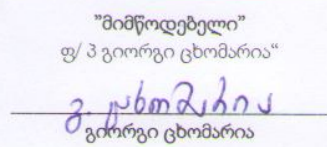 "მიმწოდებელი"
ფ/ პ გიორგი ცხომარია“
გ. ცხომარია
გიორგი ცხომარია